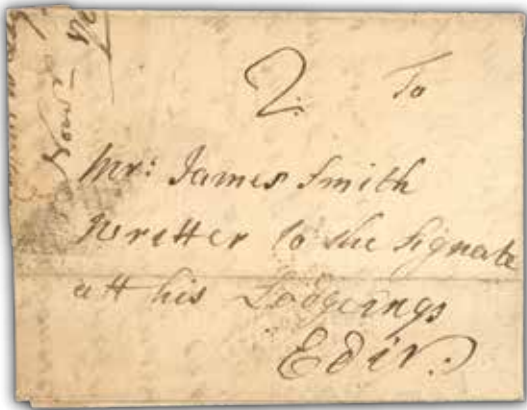 2 To
Mr: James Smith
Writter to the Signate
att his Lodgeings
Edinr: